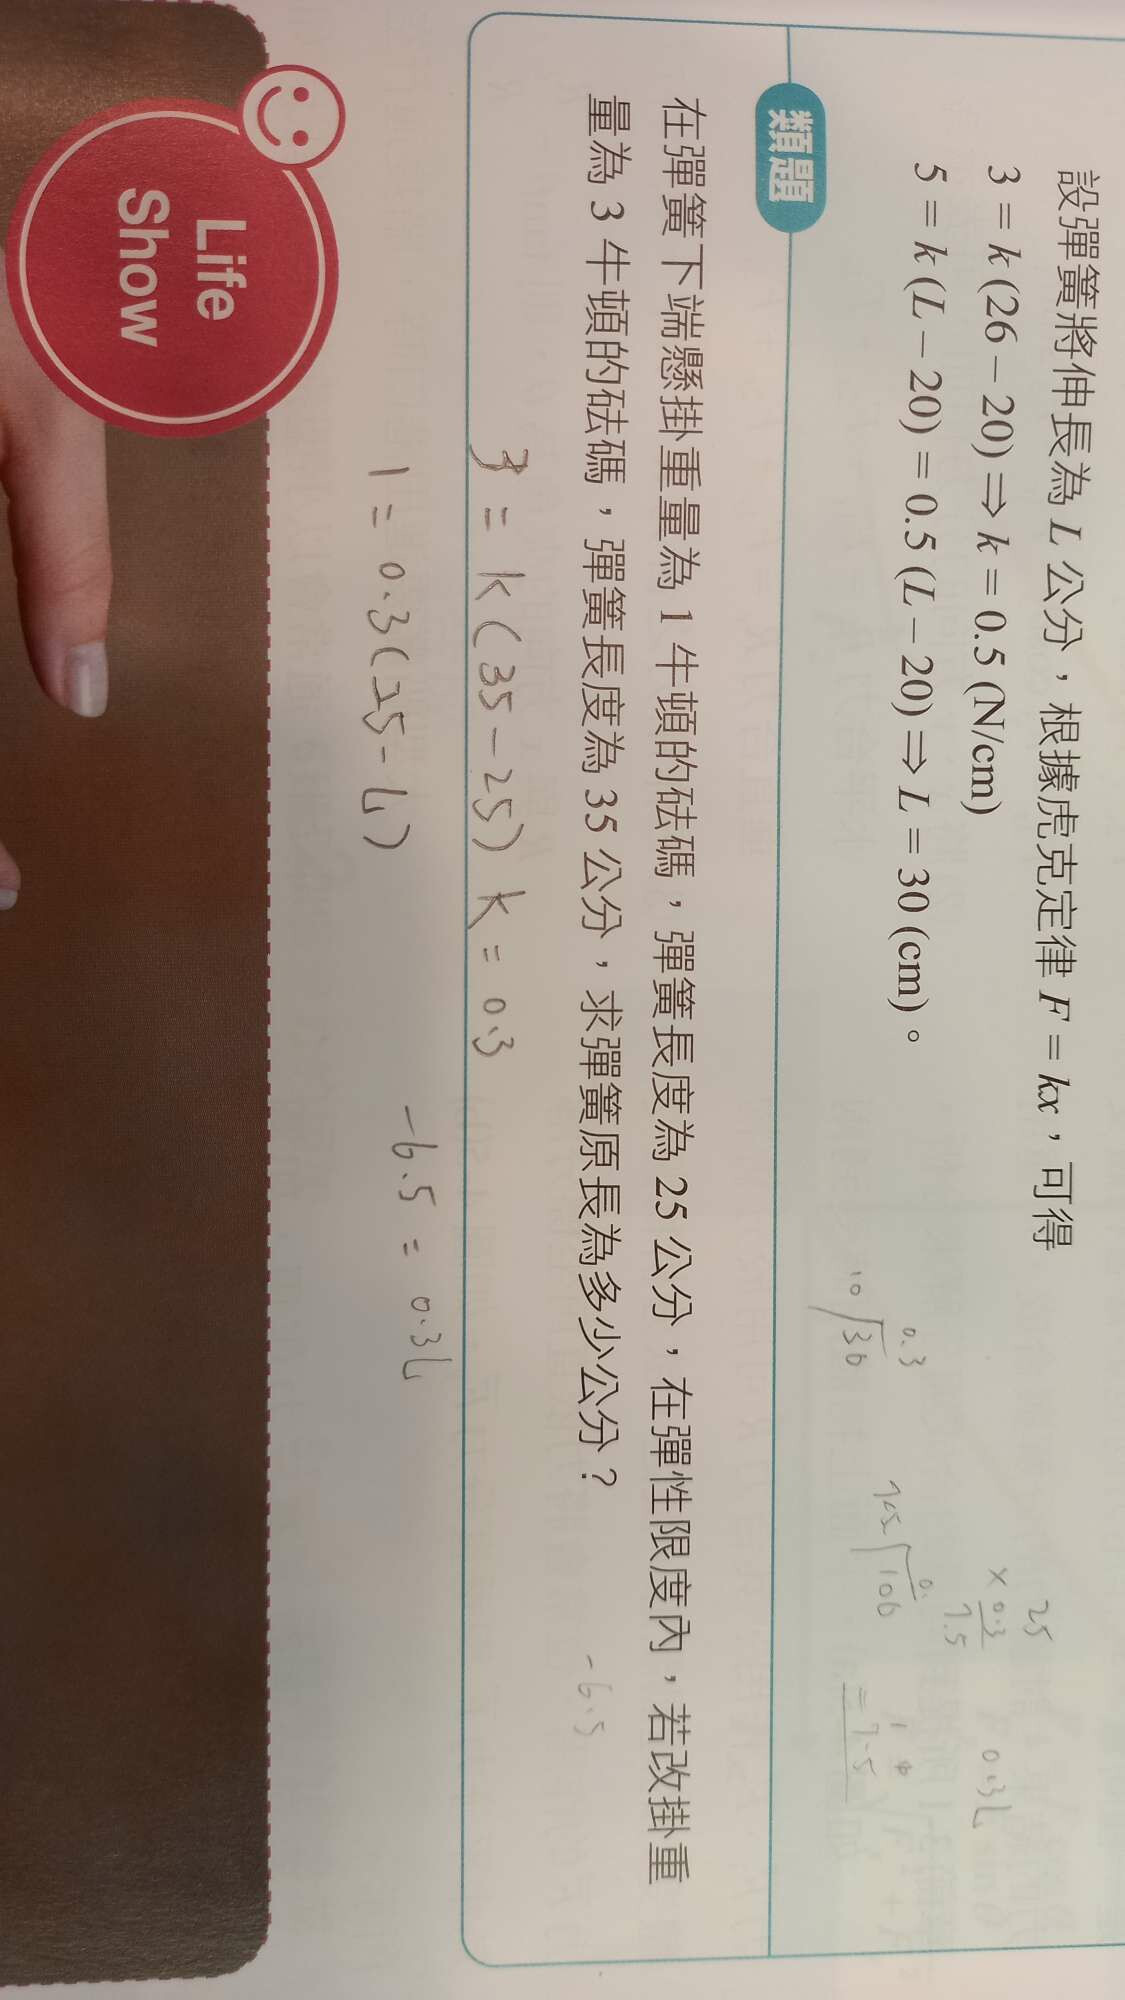 設彈簧將伸長為 L 公分，根據虎克定律 F = kx，可得
3 = k (26 – 20) ⇒ k = 0.5 (N/cm)
5 = k (L – 20) = 0.5 (L – 20) ⇒ L = 30 (cm)。
10 30 0.3
100 0.
25
× 0.3
7.5
0.3L
= 7.5
類題
在彈簧下端懸掛重量為 1 牛頓的砝碼，彈簧長度為 25 公分，在彈性限度內，若改掛重
量為 3 牛頓的砝碼，彈簧長度為 35 公分，求彈簧原長為多少公分？
-6.5
3 = k(35-25) k = 0.3
1 = 0.3(25-L)
-6.5 = 0.3L
Life
Show